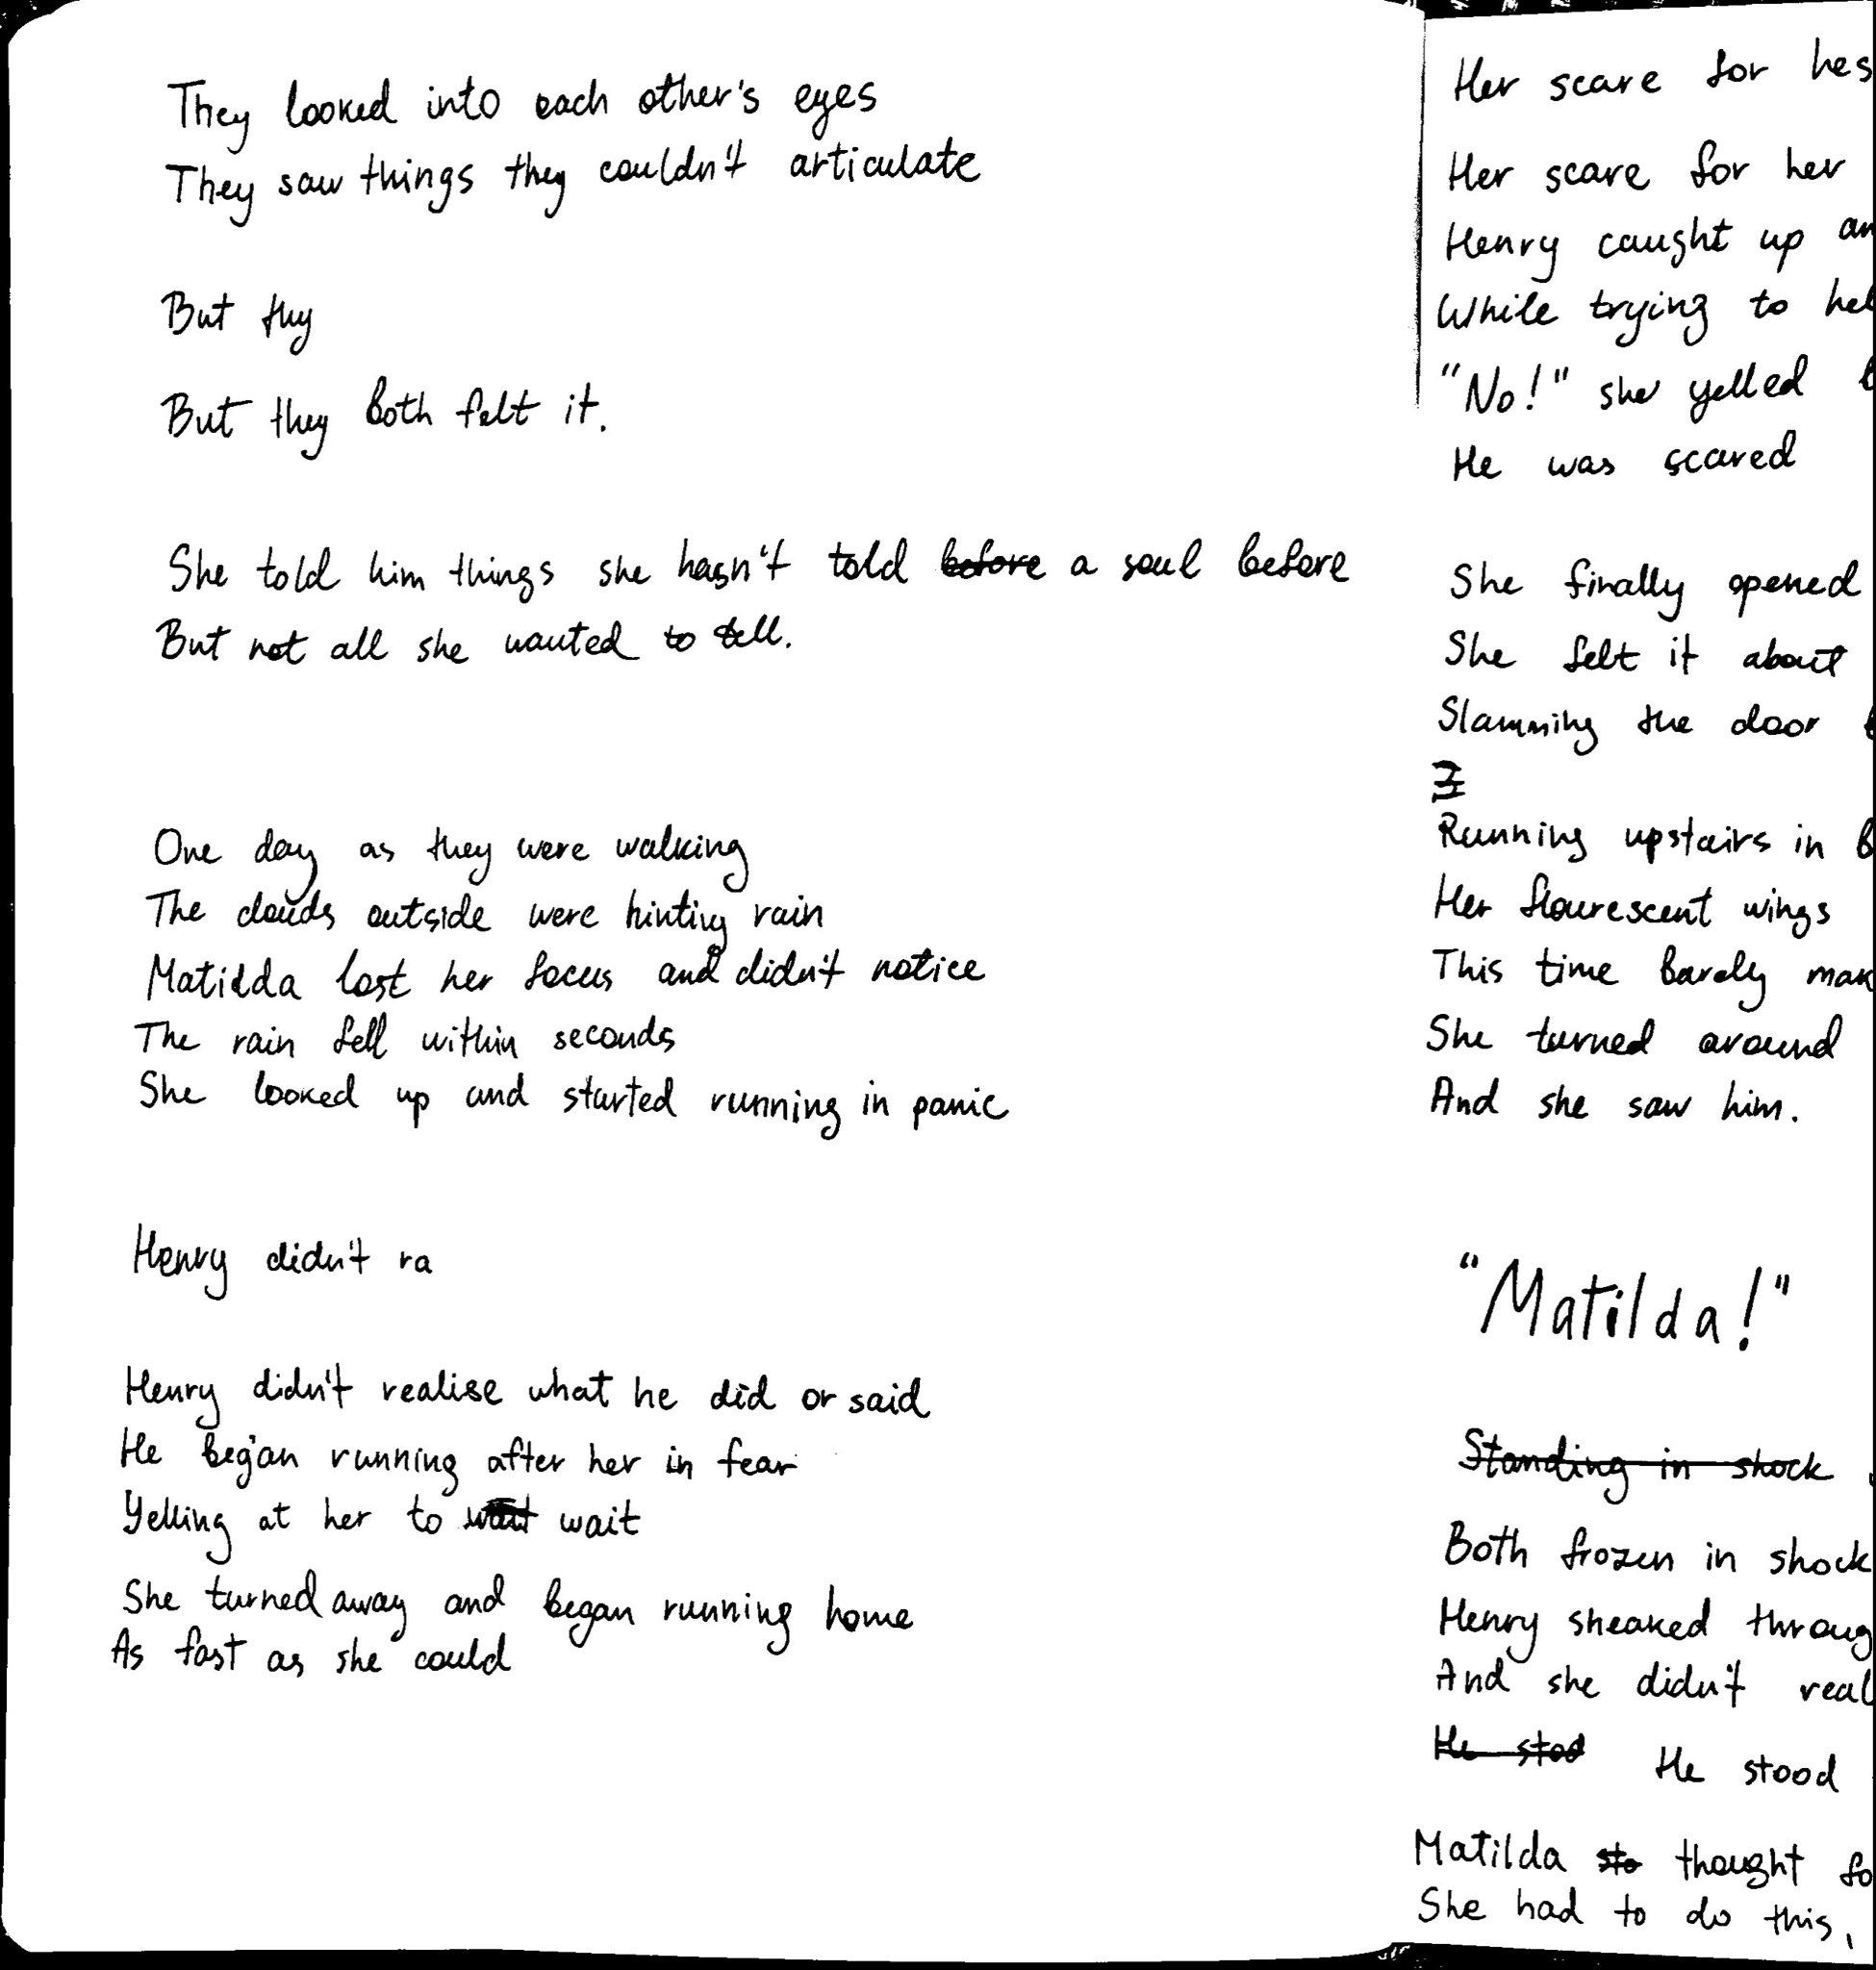 They looked into each other's eyes
They saw things they couldn't articulate
But thy
But they both felt it.
She told him things she hasn't told before a soul before
But not all she wanted to tell.
One day as they were walking
The clouds outside were hinting rain
Matilda lost her focus and didn't notice
The rain fell within seconds
She looked up and started running in panic
Henry didn't ra
Henry didn't realise what he did or said
He began running after her in fear
Yelling at her to wait wait
She turned away and began running home
As fast as she could
Her scare for hes
Her scare for her
Henry caught up an
While trying to hel
"No!" she yelled
He was scared
She finally opened
She felt it about
Slamming the door
Running upstairs in B
Her flourescent wings
This time barely mak
She turned around
And she saw him.
"Matilda!"
Standing in shock
Both frozen in shock
Henry sneaked throug
And she didn't real
He stod He stood
Matilda sto thought fo
She had to do this,